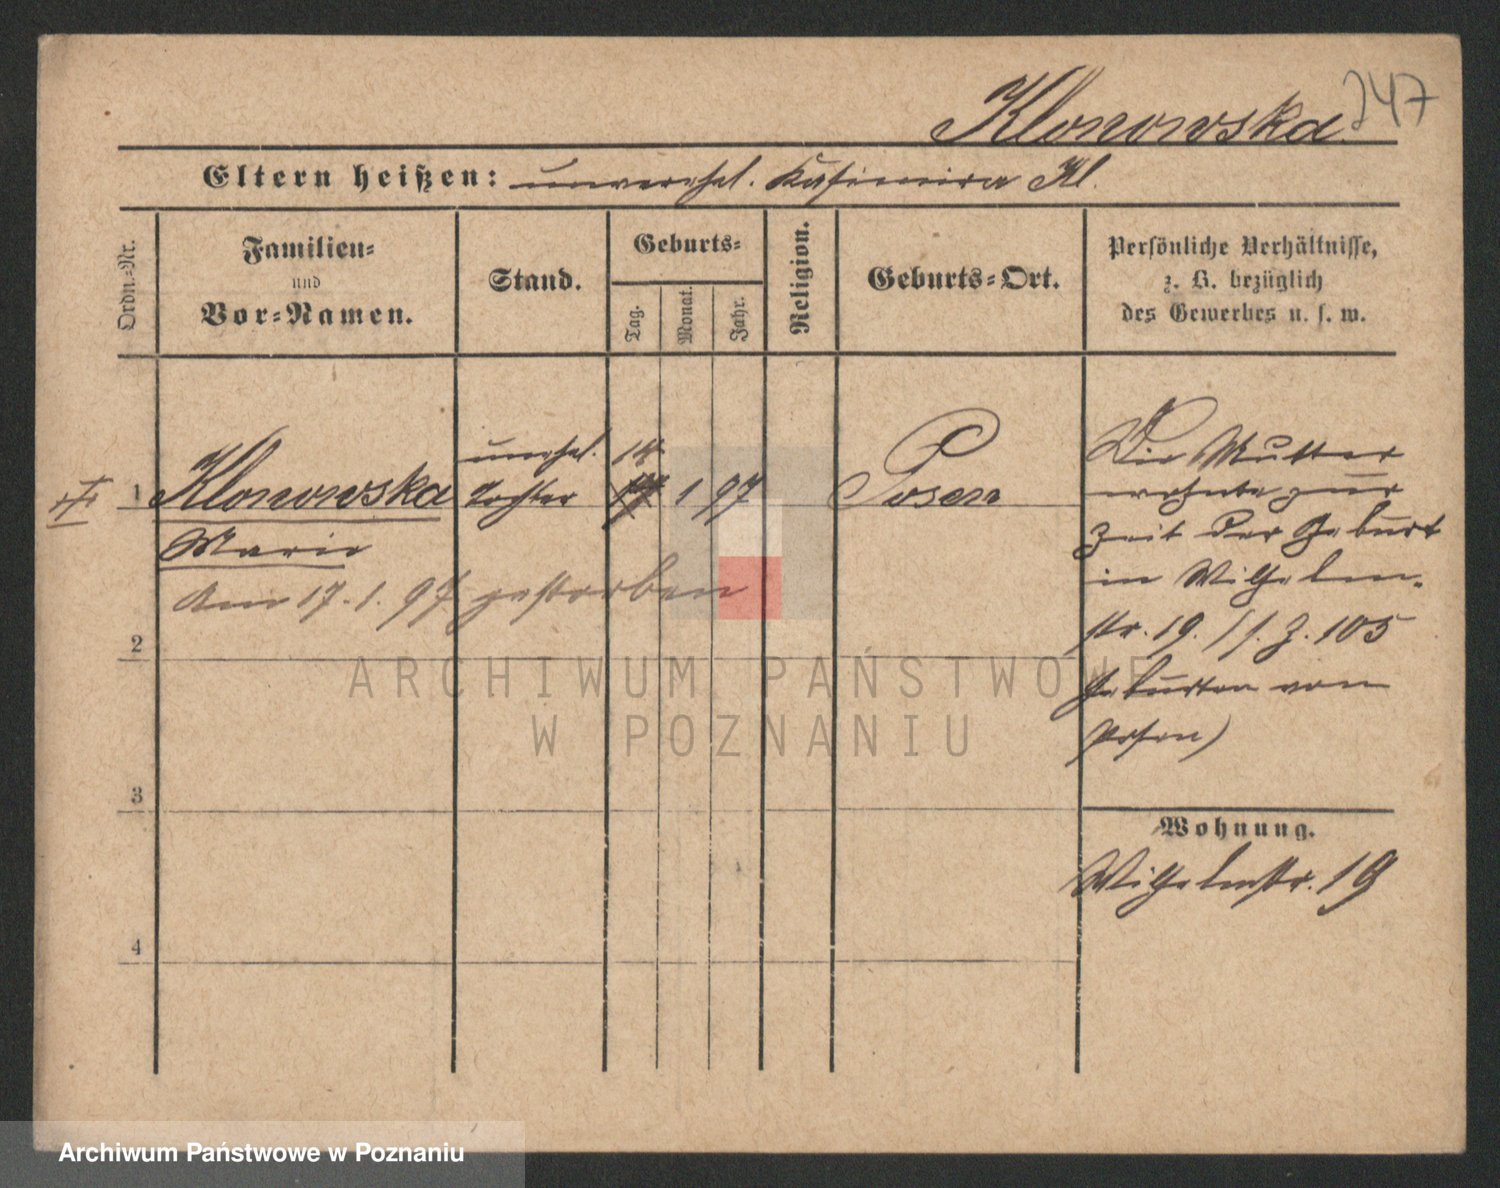 Klonowska. 247
Eltern heißen: unverehel. Kasimira Kl.
Ordn.-Nr.
Familien-
und
Vor-Namen.
Stand.
Geburts-
Tag.
Monat.
Jahr.
Religion.
Geburts-Ort.
Persönliche Verhältnisse,
z. B. bezüglich
des Gewerbes u. s. w.
unehel. 14
1 Klonowska Tochter 1 97 Posen
Marie
Am 17.1.97 gestorben
2
3
4
Die Mutter
wohnte zur
Zeit der Geburt
in Wilhelm-
str. 19. Z. 105
Geburten von
Posen)
Wohnung.
Wilhelmstr. 19
ARCHIWUM PAŃSTWOWE
W POZNANIU
Archiwum Państwowe w Poznaniu